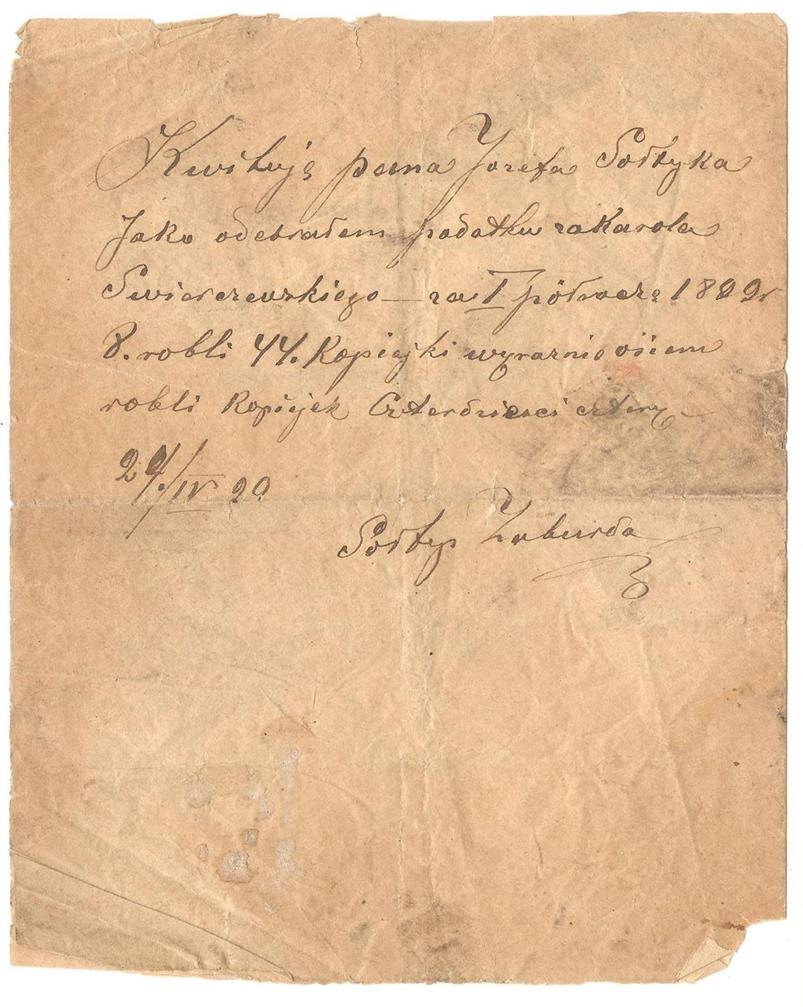 Kwituję pana Jozefa Sołtyka
Jako odebrałem podatku za Karola
Swierczewskiego — za I półrocze 1899r
8. robli 44. Kopiejki wyraznie ośiem
robli Kopiejek Czterdziesci cztery
24/IV 99
Sołtys Zaburda